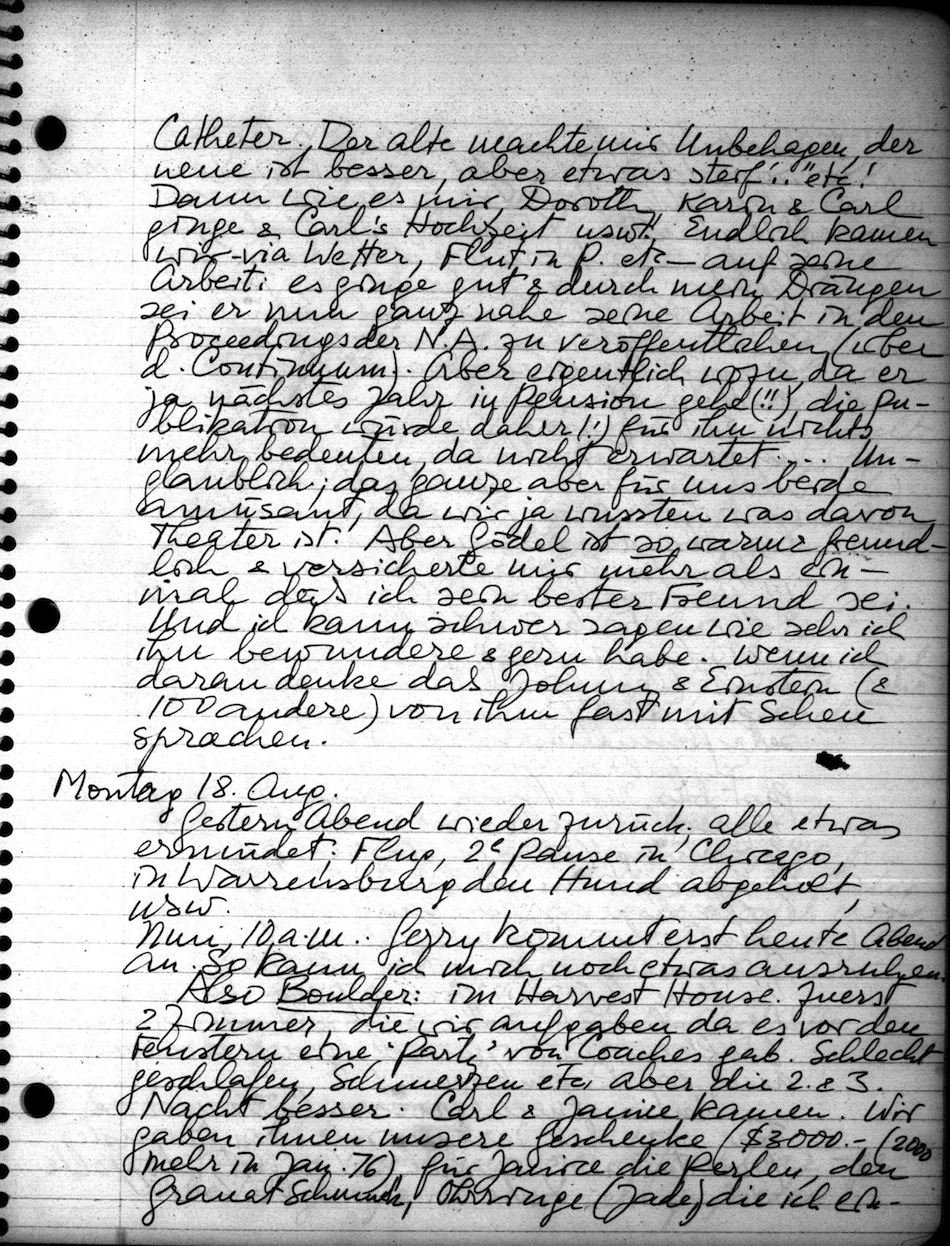 Catheter. Der alte machte mir Unbehagen, der
neue ist besser, aber etwas steif..." etc!
Dann wie es mir, Dorothy, Karin & Carl
ginge & Carl's Hochzeit usw! Endlich kamen
wir – via Wetter, Flut in P. etc – auf seine
Arbeit: es ginge gut & durch mein Drängen
sei er nun ganz nahe seine Arbeit in den
Proceedings der N.A. zu veröffentlichen (über
d. Continuum). Aber eigentlich wozu, da er
ja nächstes Jahr in Pension gehe (!!), die Pu-
blikation würde daher (!) für ihn nichts
mehr bedeuten, da nicht erwartet .... Un-
glaublich; das ganze aber für uns beide
amüsant, da wir ja wussten was davon
Theater ist. Aber Gödel ist so warm & freund-
lich & versicherte mir mehr als ein-
mal dass ich sein bester Freund sei.
Und ich kann schwer sagen wie sehr ich
ihn bewundere & gern habe. Wenn ich
daran denke das Johnny & Einstein (&
100 andere) von ihm fast mit Scheu
sprachen.
Montag 18. Aug.
Gestern Abend wieder zurück; alle etwas
ermüdet: Flug, 2h Pause in Chicago,
in Warrensburg den Hund abgeholt,
usw.
Nun, 10 a.m.. Gerry kommt erst heute Abend
an. So kann ich mich noch etwas ausruhen.
Also Boulder: im Harvest House. Zuerst
2 Zimmer, die wir aufgaben da es vor den
Fenstern eine 'Party' von Coaches gab. Schlecht
geschlafen, Schmerzen etc, aber die 2. & 3.
Nacht besser. Carl & Janice kamen. Wir
gaben ihnen unsere Geschenke ($3000.– (2000
mehr in Jan. 76), für Janice die Perlen, den
Granat Schmuck, Ohrringe (Jade) die ich ein-